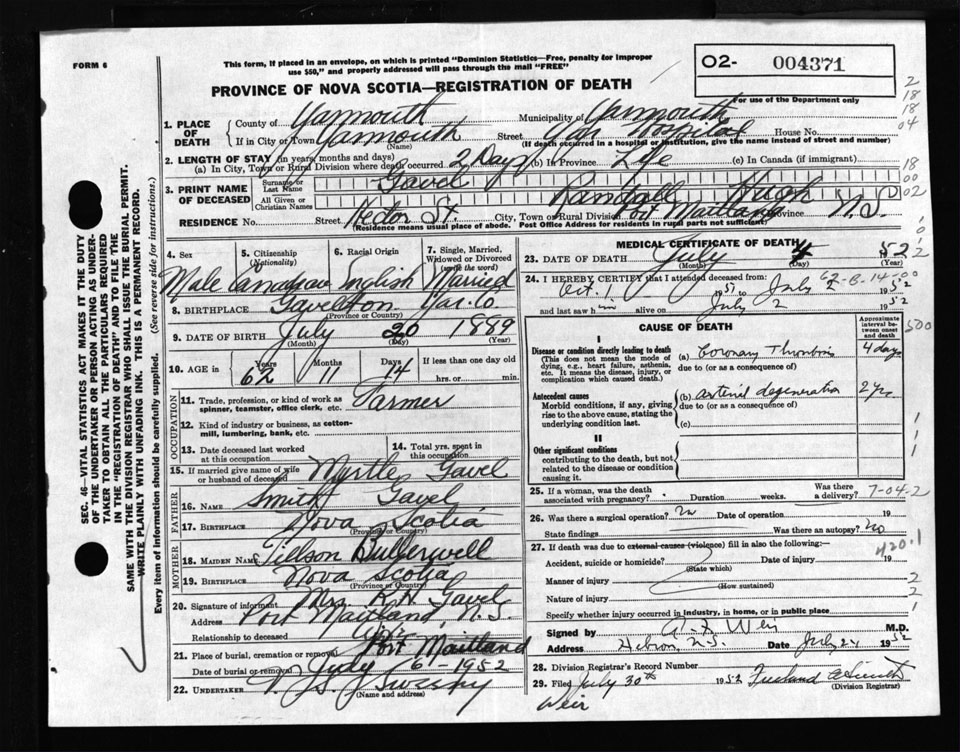 FORM 6
This form, if placed in an envelope, on which is printed "Dominion Statistics—Free, penalty for improper
use $50," and properly addressed will pass through the mail "FREE"
O2- 004371
For use of the Department only
PROVINCE OF NOVA SCOTIA—REGISTRATION OF DEATH
SEC. 46—VITAL STATISTICS ACT MAKES IT THE DUTY
OF THE UNDERTAKER OR PERSON ACTING AS UNDER-
TAKER TO OBTAIN ALL THE PARTICULARS REQUIRED
IN THE "REGISTRATION OF DEATH" AND TO FILE THE
SAME WITH THE DIVISION REGISTRAR WHO SHALL ISSUE THE BURIAL PERMIT.
WRITE PLAINLY WITH UNFADING INK. THIS IS A PERMANENT RECORD.
Every item of Information should be carefully supplied. (See reverse side for instructions.)
1. PLACE OF DEATH County of Yarmouth Municipality of Yarmouth
If in City or Town Yarmouth (Name) Street Yar Hospital House No.
(If death occurred in a hospital or institution, give the name instead of street and number)
2. LENGTH OF STAY (in years, months and days)
(a) In City, Town or Rural Division where death occurred 2 Days (b) In Province Life (c) In Canada (if immigrant)
3. PRINT NAME OF DECEASED Surname or Last Name Gavel
All Given or Christian Names Randall Hugh
RESIDENCE No. Street Hector St. City, Town or Rural Division Port Maitland Province N.S.
(Residence means usual place of abode. Post Office Address for residents in rural parts not sufficient)
4. Sex 5. Citizenship (Nationality) 6. Racial Origin 7. Single, Married, Widowed or Divorced (write the word)
Male Canadian English Married
8. BIRTHPLACE Gavelton Yar. Co (Province or Country)
9. DATE OF BIRTH July 20 1889 (Month) (Day) (Year)
10. AGE in Years 62 Months 11 Days 14 If less than one day old hrs. or min.
OCCUPATION
11. Trade, profession, or kind of work as
spinner, teamster, office clerk, etc. Farmer
12. Kind of industry or business, as cotton-
mill, lumbering, bank, etc.
13. Date deceased last worked at this occupation
14. Total yrs. spent in this occupation
15. If married give name of wife or husband of deceased Myrtle Gavel
FATHER
16. Name Smith Gavel
17. Birthplace Nova Scotia (Province or Country)
MOTHER
18. MAIDEN NAME Tillson Bullerwell
19. Birthplace Nova Scotia (Province or Country)
20. Signature of informant Mrs. R. H. Gavel
Address Port Maitland, N.S.
Relationship to deceased
21. Place of burial, cremation or removal Port Maitland
Date of burial or removal July 6-1952
22. UNDERTAKER Sweeny
(Name and address)
MEDICAL CERTIFICATE OF DEATH
23. DATE OF DEATH July 4 1952 (Month) (Day) (Year)
24. I HEREBY CERTIFY that I attended deceased from:
Oct. 1 1951 to July 2 1952
and last saw him alive on July 2 1952
62-8-14-00
CAUSE OF DEATH
Approximate interval between onset and death
I
Disease or condition directly leading to death
(This does not mean the mode of
dying, e.g., heart failure, asthenia,
etc. It means the disease, injury, or
complication which caused death.)
(a) Coronary Thrombosis 4 days
due to (or as consequence of)
Antecedent causes
Morbid conditions, if any, giving
rise to the above cause, stating the
underlying condition last.
(b) arterial degeneration 2 yrs
due to (or as consequence of)
(c)
II
Other significant conditions
contributing to the death, but not
related to the disease or condition
causing it.
25. If a woman, was the death associated with pregnancy? Duration weeks. Was there a delivery? 7-04-2
26. Was there a surgical operation? no Date of operation 19
State findings Was there an autopsy? no
27. If death was due to external causes (violence) fill in also the following:—
420.1
Accident, suicide or homicide? (State which) Date of injury 19
Manner of injury (How sustained)
Nature of injury
Specify whether injury occurred in industry, in home, or in public place
Signed by Weir M.D.
Address Hebron, N.S. Date July 24 1952
28. Division Registrar's Record Number
29. Filed July 30th 1952 (Division Registrar)
Weir